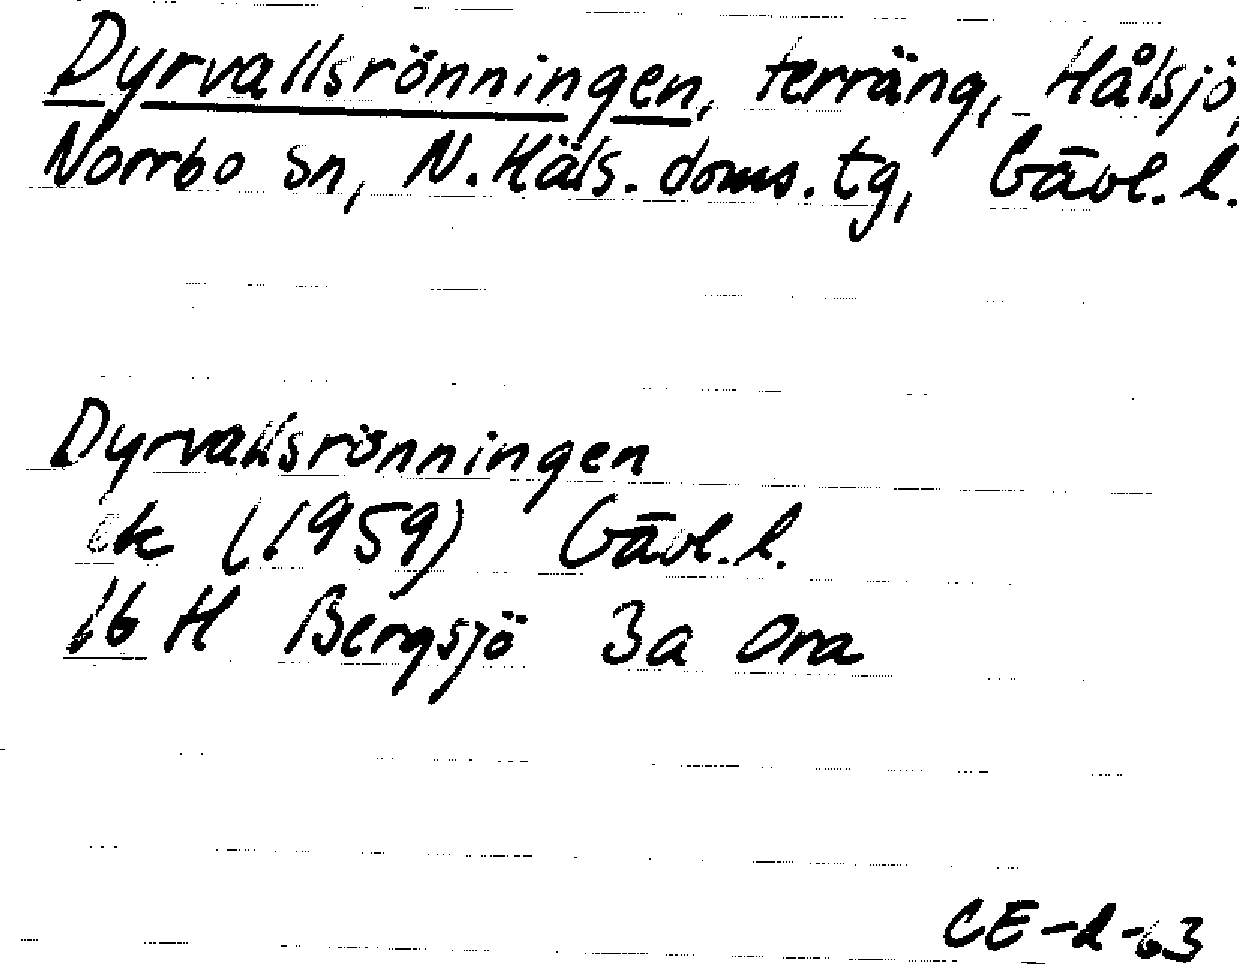 Dyrvallsrönningen, terräng, Hålsjö,
Norrbo sn, N. Häls. doms. tg, Gävl. l.
Dyrvallsrönningen
ek (1959) Gävl. l.
16 H Bergsjö 3a Ora
CE-d-63